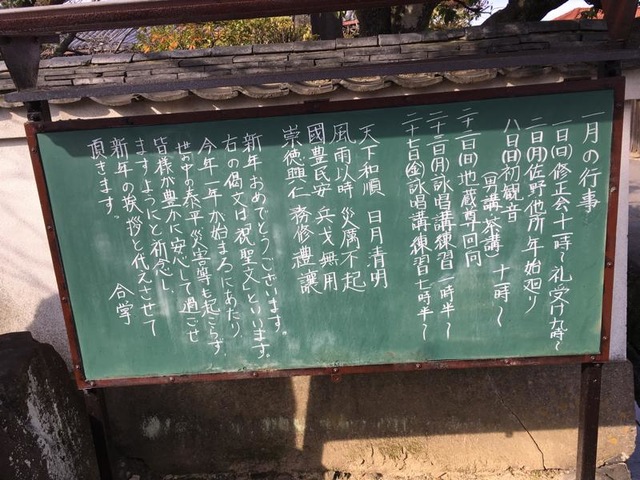 一月の行事
一日(日)修正会十一時〜礼受け九時〜
二日(月)佐野他所年始廻り
八日(日)初観音 十一時〜
(男講・茶講)
二十二日(日)地蔵尊回向
二十三日(月)詠唱講練習一時半〜
二十七日(金)詠唱講練習七時半〜
天下和順 日月清明
風雨以時 災厲不起
國豊民安 兵戈無用
崇徳興仁 務修禮讓
新年おめでとうございます。
右の偈文は祝聖文といいます。
今年一年が始まるにあたり
世の中の泰平災害等も起こらず、
皆様が豊かに安心して過ごせ
ますようにと祈念し、
新年の挨拶と代えさせて
頂きます。 合学